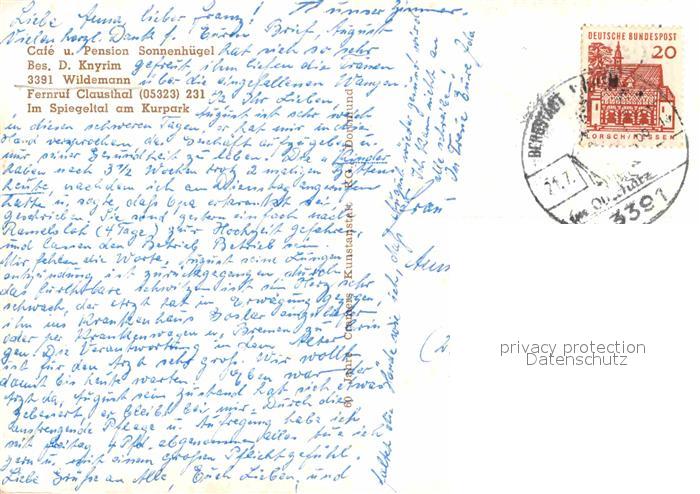 Liebe Anna, lieber Franz!
Vielen herzl. Dank f. Euren Brief, August
hat sich so sehr
gefreut
über die eingefallenen Wangen.
Ja Ihr Lieben,
August ist sehr
in diesen schweren Tagen. Er hat mir in die
Hand versprochen das Geschäft aufzugeben
nur seiner Gesundheit zu leben. Die
haben nach 3½ Wochen trotz 2 maligen
heute, nachdem ich am Dienstag angerufen
hatte u. sagte, daß Opa erkrankt sei,
geschrieben. Sie sind gestern einfach nach
(4 Tage) zur Hochzeit gefahren
und lassen den Betrieb Betrieb sein.
Mir fehlen die Worte, August seine Lungen-
entzündung ist zurückgegangen, durch
das furchtbare schwitzen ist sein Herz sehr
schwach, der Arzt hat in Erwägung gezogen,
ihn ins Krankenhaus Goslar
oder per Krankenwagen n. Bremen zu
gen. Die Verantwortung in dem Alter
ist für den Arzt sehr groß. Wir wollten
damit bis heute warten. Eben war der
Arzt da, August sein Zustand hat sich etwas
gebessert, er bleibt bei mir. Durch die
anstrengende Pflege u. Aufregung habe ich
seit Freitag 4 Pfd. abgenommen, alles tue ich
gern u. mit einem großen Pflichtgefühl.
Liebe Grüße an Alle, Euch Lieben, und
unser Zimmer.
Café u. Pension Sonnenhügel
Bes. D. Knyrim
3391 Wildemann
Fernruf Clausthal (05323) 231
Im Spiegeltal am Kurpark
60 Jahre Cramers Kunstanstalt KG., Dortmund
haltet die Hände wie ich, daß
Ich kann nicht an
alle schreiben,
In Treue Eure
Frau
DEUTSCHE BUNDESPOST
20
LORSCH/HESSEN
BERGSTADT
21.7.
im Oberharz
3391
privacy protection
Datenschutz